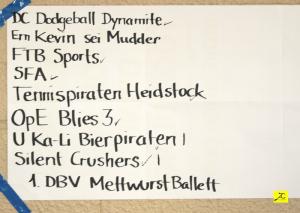 DC Dodgeball Dynamite
Ern Kevin sei Mudder
FTB Sports
SFA
Tennispiraten Heidstock
OpE Blies 3
U Ka-Li Bierpiraten I
Silent Crushers I
1. DBV Mettwurst Ballett